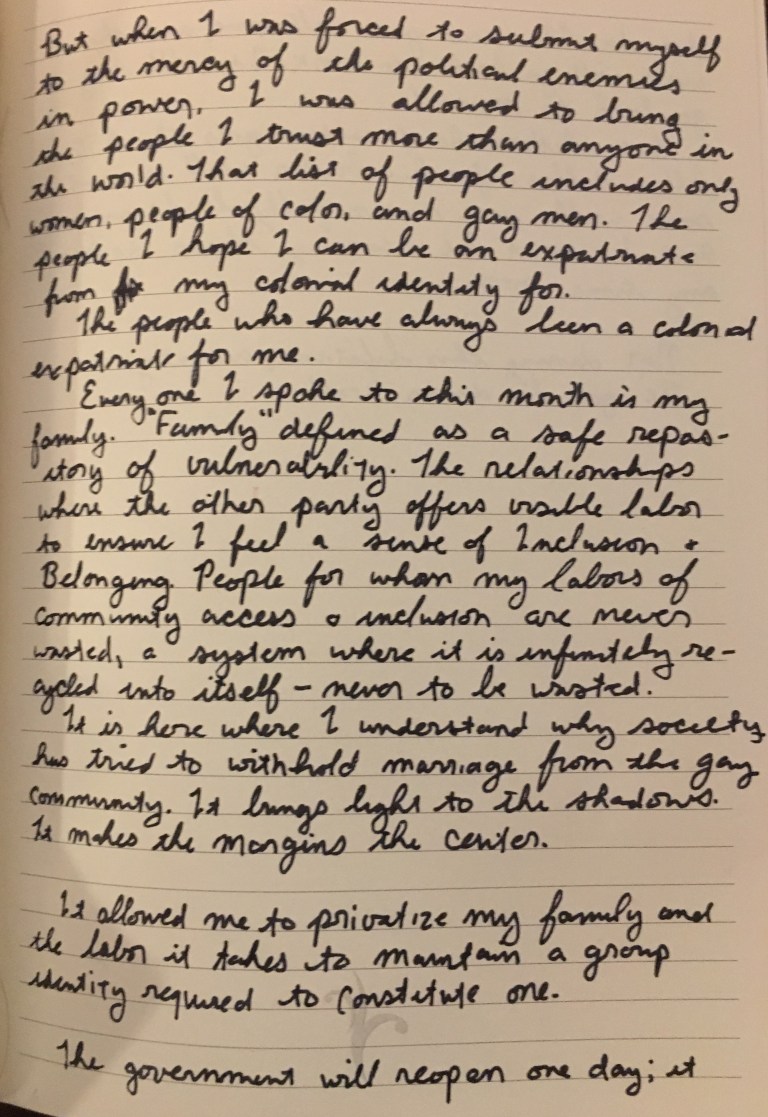 But when I was forced to submit myself
to the mercy of the political enemies
in power, I was allowed to bring
the people I trust more than anyone in
the world. That list of people includes only
women, people of color, and gay men. The
people I hope I can be an expatriate
from my colonial identity for.
The people who have always been a colonial
expatriate for me.
Every one I spoke to this month is my
family. "Family" defined as a safe repos-
itory of vulnerability. The relationships
where the other party offers visible labor
to ensure I feel a sense of Inclusion +
Belonging. People for whom my labors of
community access & inclusion are never
wasted, a system where it is infinitely re-
cycled into itself - never to be wasted.
It is here where I understand why society
has tried to withhold marriage from the gay
community. It brings light to the shadows.
It makes the margins the center.
It allowed me to privatize my family and
the labor it takes to maintain a group
identity required to constitute one.
The government will reopen one day; it